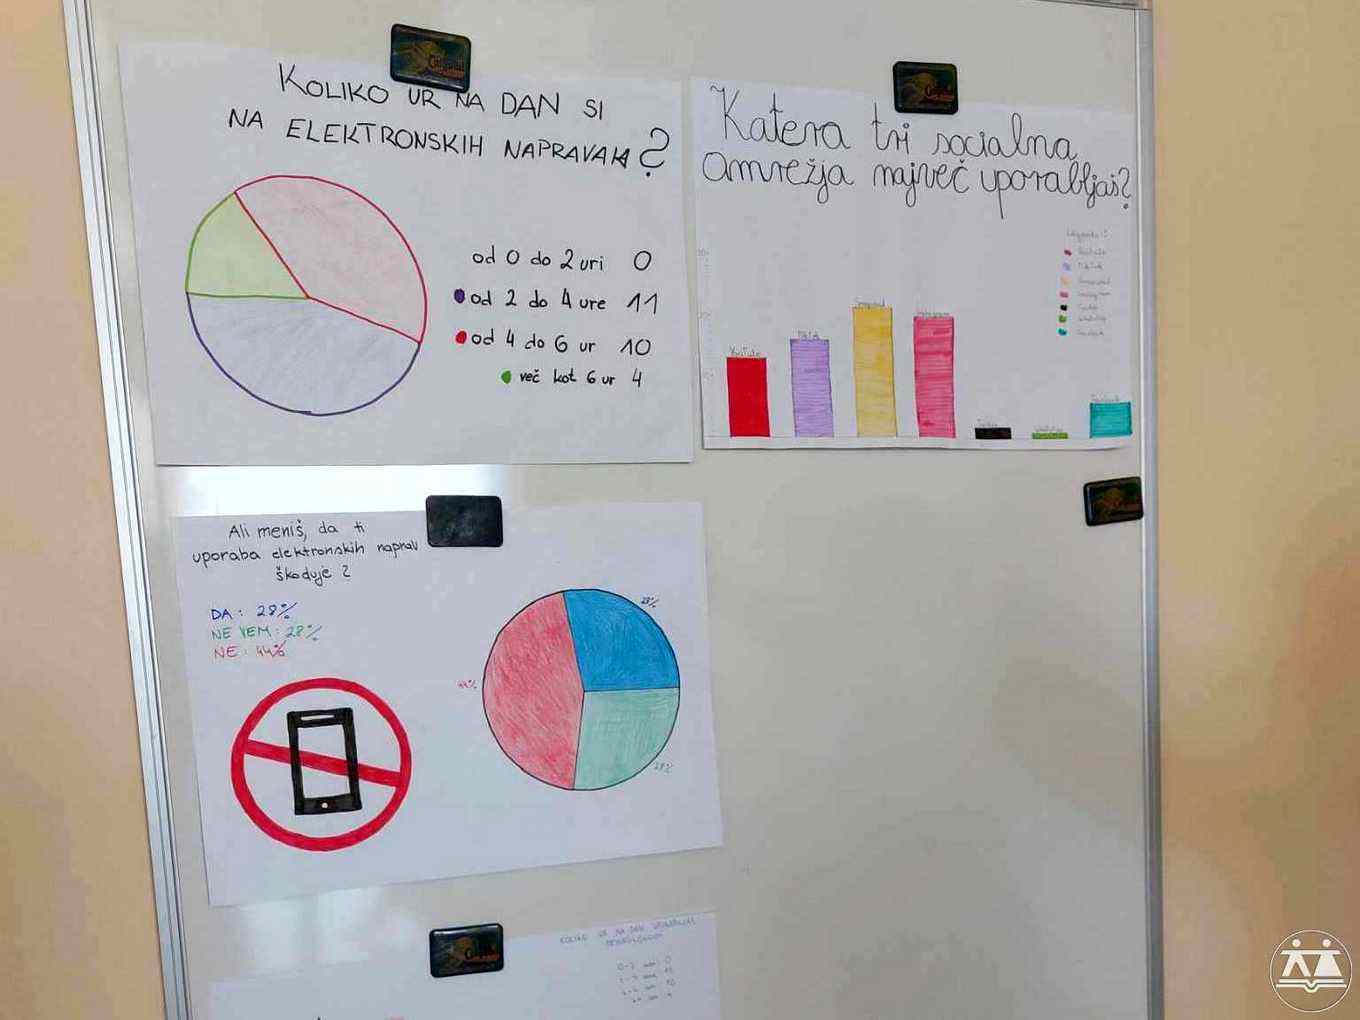 KOLIKO UR NA DAN SI
NA ELEKTRONSKIH NAPRAVAH?
od 0 do 2 uri 0
od 2 do 4 ure 11
od 4 do 6 ur 10
več kot 6 ur 4
Katera tri socialna
omrežja največ uporabljaš?
YouTube
Snapchat
Instagram
Ali meniš, da ti
uporaba elektronskih naprav
škoduje?
DA: 28%
NE VEM: 28%
NE: 44%
28%
44%
28%
KOLIKO UR NA DAN